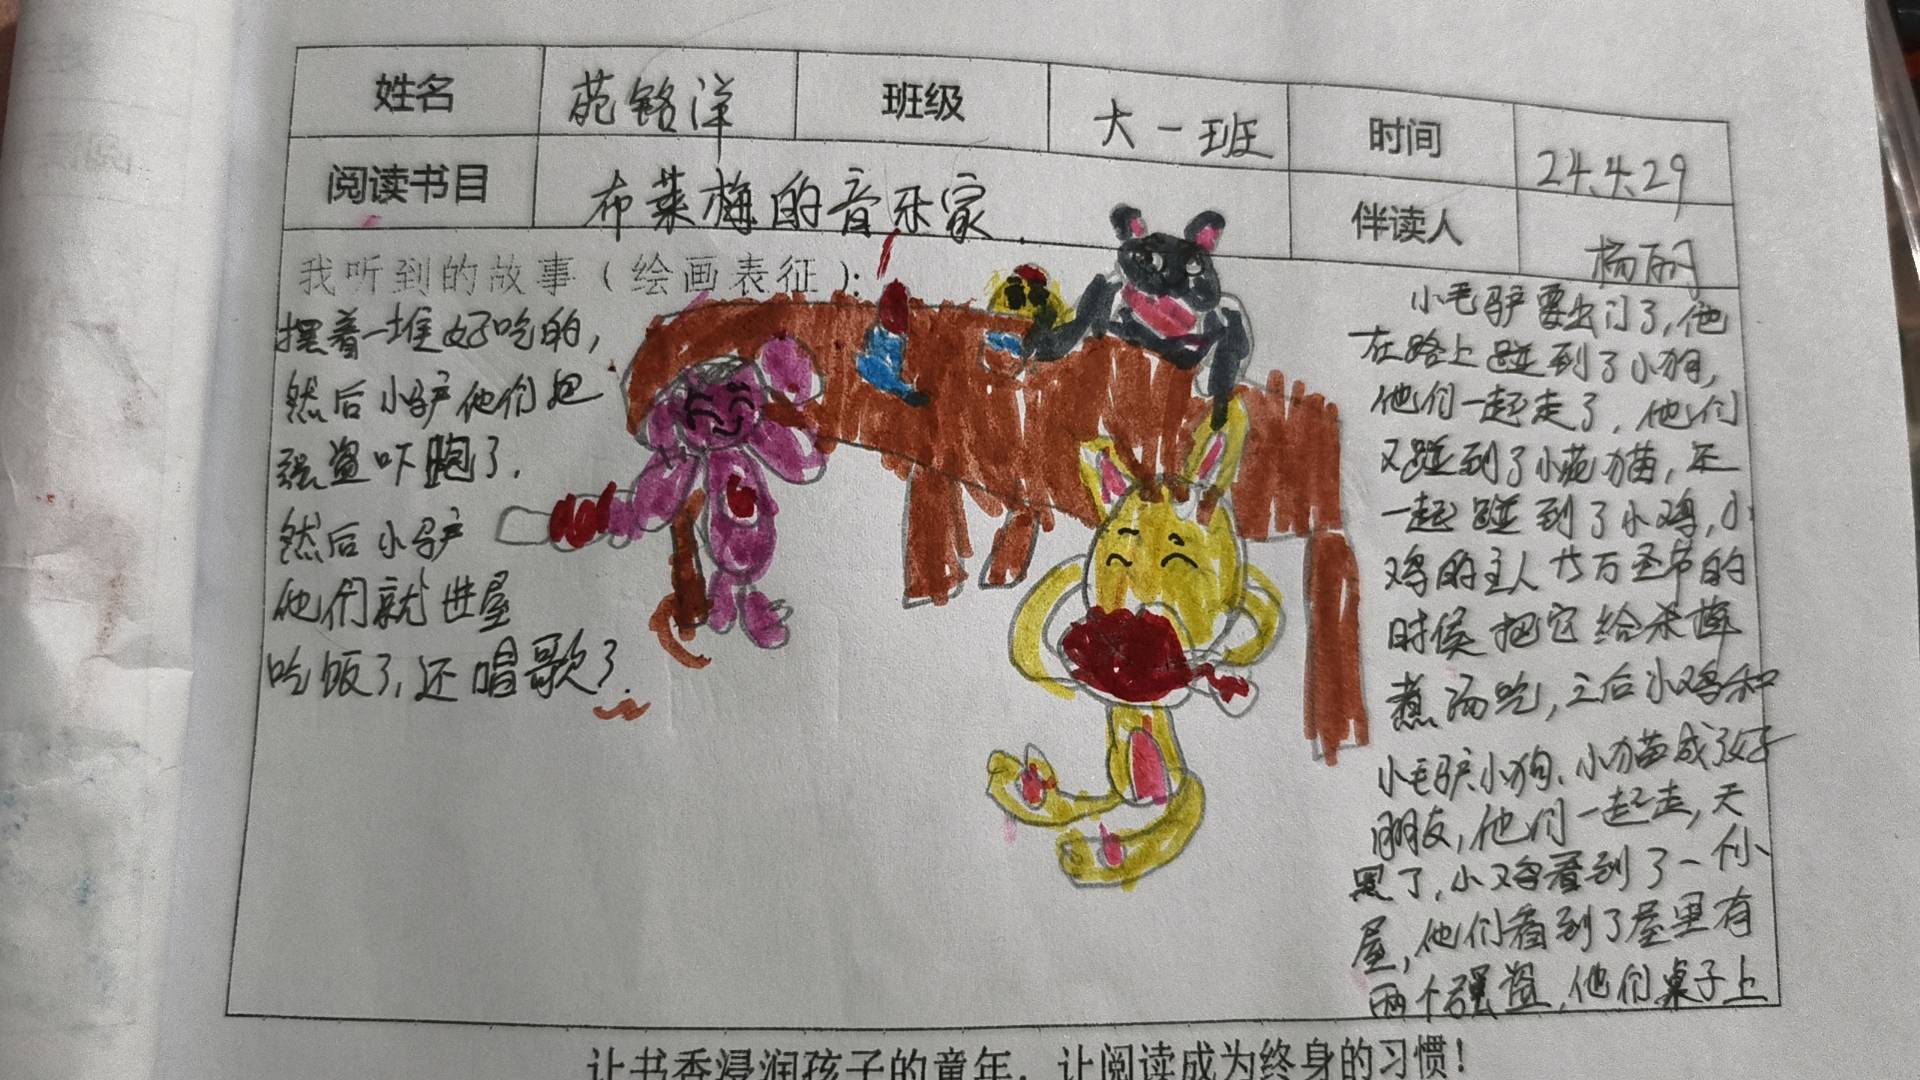 姓名 苑铭洋 班级 大一班 时间 24.4.29
阅读书目 布莱梅的音乐家 伴读人 杨丽
我听到的故事（绘画表征）：
小毛驴要出门了，他
在路上碰到了小狗，
他们一起走了，他们
又碰到了小花猫，还
一起碰到了小鸡，小
鸡的主人在万圣节的
时候把它给杀掉
煮汤吃，之后小鸡和
小毛驴、小狗、小猫成了好
朋友，他们一起走，天
黑了，小鸡看到了一个小
屋，他们看到了屋里有
两个强盗，他们桌子上
摆着一堆好吃的，
然后小驴他们把
强盗吓跑了.
然后小驴
他们就进屋
吃饭了，还唱歌了.
让书香浸润孩子的童年，让阅读成为终身的习惯！